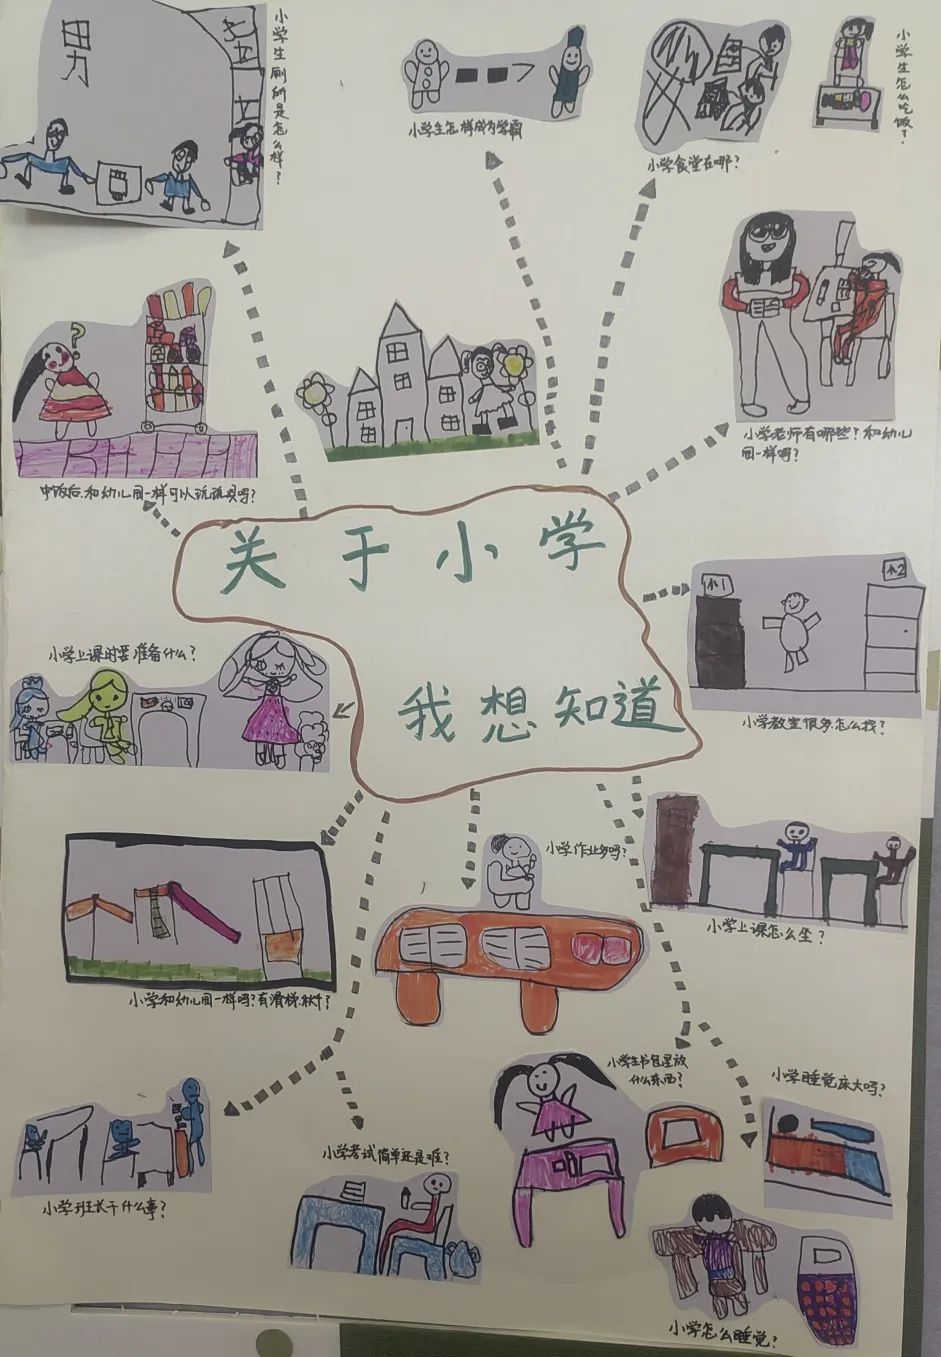 小学生厕所是怎么样?
田力
小学生怎样成为学霸
小学食堂在哪?
小学生怎么吃饭?
中饭后,和幼儿园一样可以玩玩具吗?
小学老师有哪些?和幼儿
园一样吗?
关于小学
我想知道
小1
小2
小学教室很多怎么找?
小学上课时要准备什么?
小学作业多吗?
小学上课怎么坐?
小学和幼儿园一样吗?有滑梯.秋千?
小学生书包里放
什么东西?
小学睡觉床大吗?
小学班长干什么事?
小学考试简单还是难?
小学怎么睡觉?